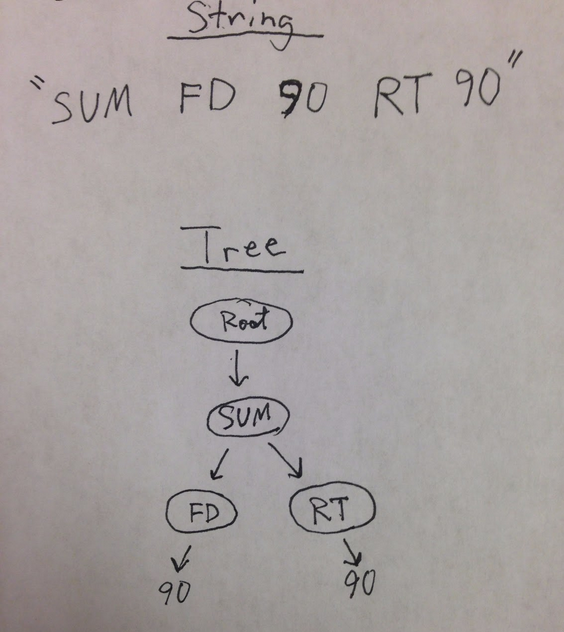 String
"SUM FD 90 RT 90"
Tree
Root
SUM
FD RT
90 90